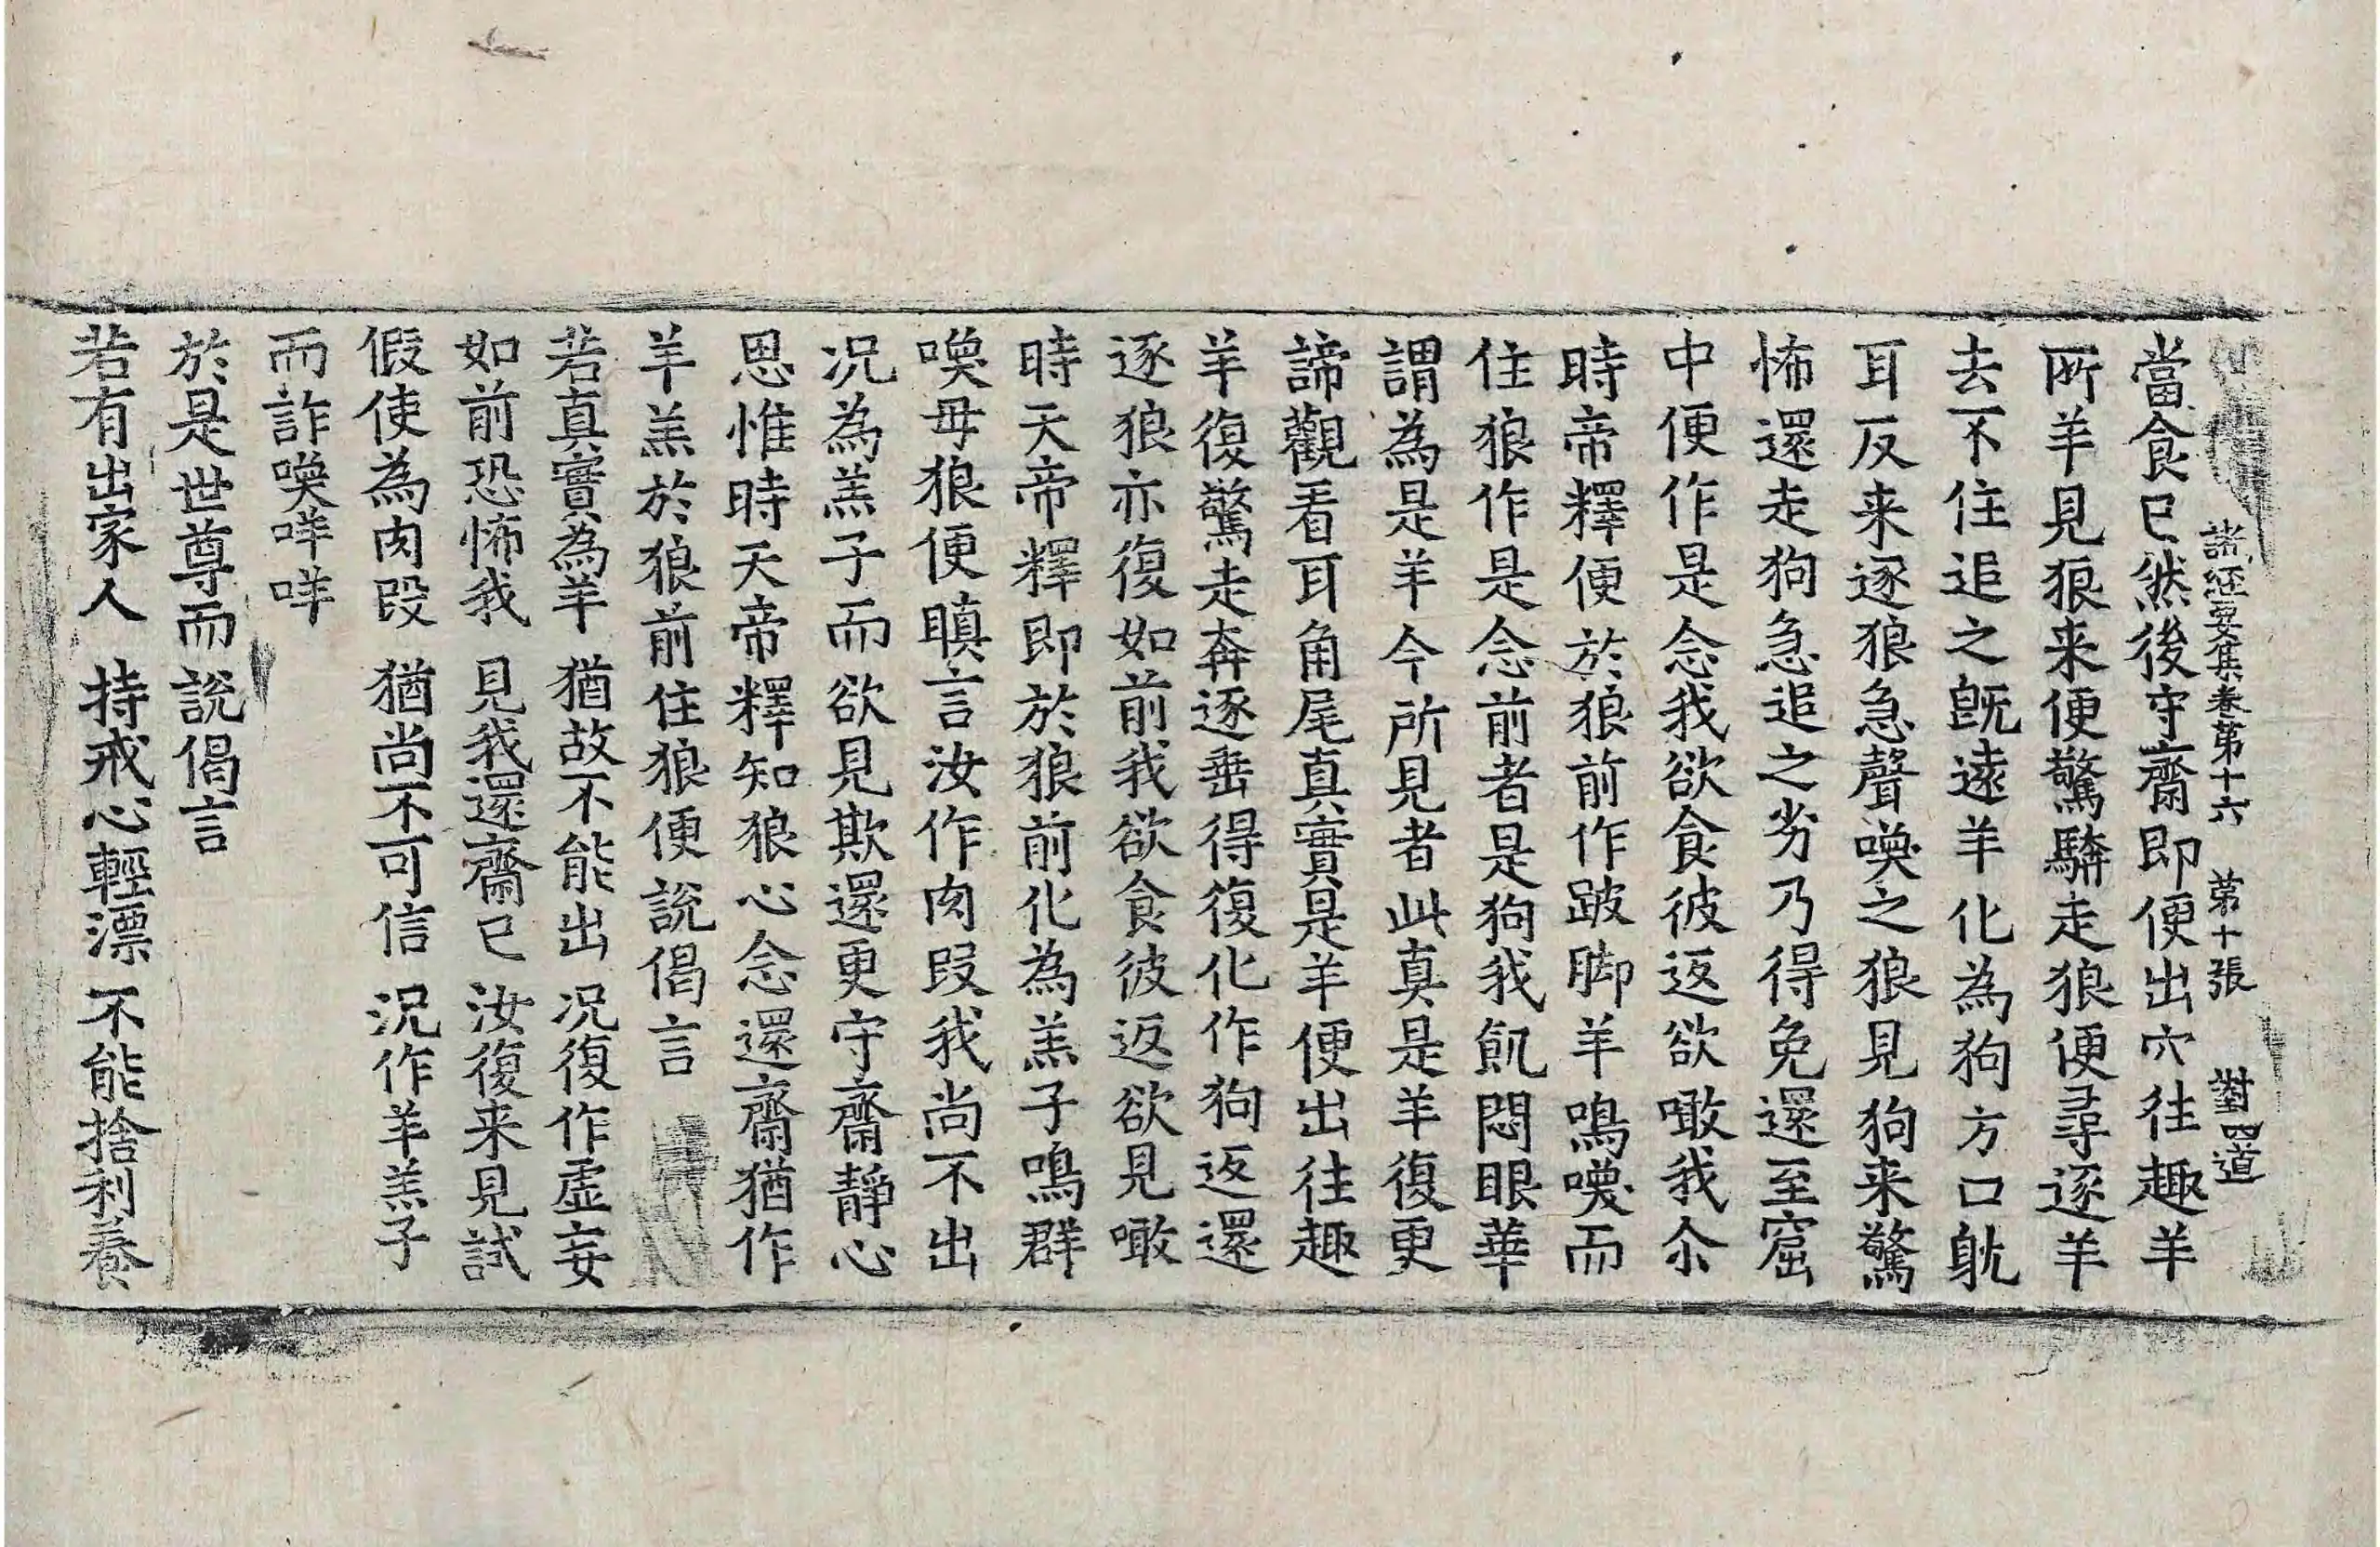 諸經要集卷第十六 第十張 對 罒道
當食已然後守齋即便出穴往趣羊
所羊見狼来便驚驎走狼便尋逐羊
去不住追之旣遠羊化為狗方口躭
耳反来逐狼急聲喚之狼見狗来驚
怖還走狗急追之劣乃得免還至窟
中便作是念我欲食彼返欲噉我尒
時帝釋便於狼前作跛脚羊鳴喚而
住狼作是念前者是狗我飢悶眼華
謂為是羊今所見者此真是羊復更
諦觀看耳角尾真實是羊便出往趣
羊復驚走奔逐垂得復化作狗返還
逐狼亦復如前我欲食彼返欲見噉
時天帝釋即於狼前化為羔子鳴群
喚母狼便瞋言汝作肉段我尚不出
况為羔子而欲見欺還更守齋靜心
思惟時天帝釋知狼心念還齋猶作
羊羔於狼前住狼便說偈言
若真實為羊 猶故不能出 况復作虛妄
如前恐怖我 見我還齋已 汝復来見試
假使為肉段 猶尚不可信 況作羊羔子
而詐喚咩咩
於是世尊而說偈言
若有出家人 持戒心輕漂 不能捨利養